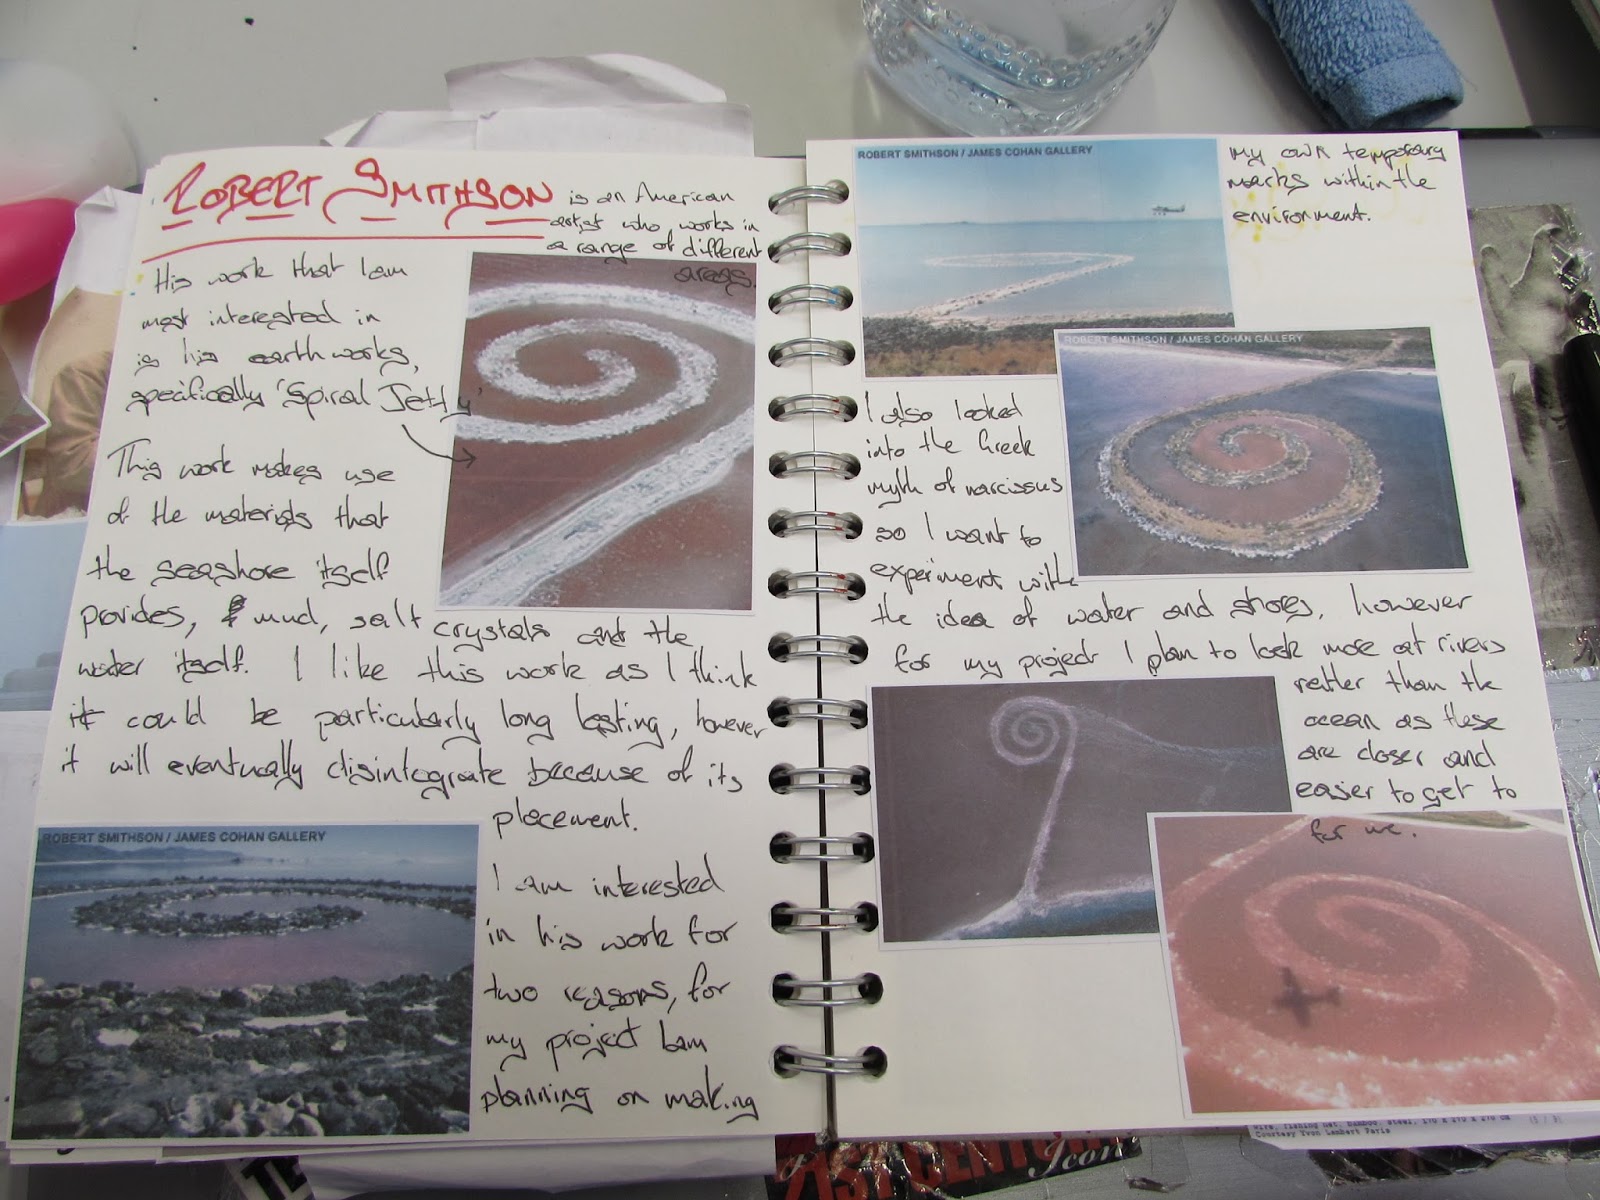 ROBERT SMITHSON is an American
artist who works in
a range of different
areas.
His work that I am
most interested in
is his earthworks,
specifically 'Spiral Jetty'
This work makes use
of the materials that
the seashore itself
provides, mud, salt crystals and the
water itself. I like this work as I think
it could be particularly long lasting, however
it will eventually disintegrate because of its
placement.
ROBERT SMITHSON / JAMES COHAN GALLERY
I am interested
in his work for
two reasons, for
my project I am
planning on making
ROBERT SMITHSON / JAMES COHAN GALLERY
my own temporary
marks within the
environment.
ROBERT SMITHSON / JAMES COHAN GALLERY
I also looked
into the Greek
myth of narcissus
so I want to
experiment with
the idea of water and shores, however
for my project I plan to look more at rivers
rather than the
ocean as these
are closer and
easier to get to
for me.
Courtesy Yvon Lambert Paris
21ST CENTURY
Icon